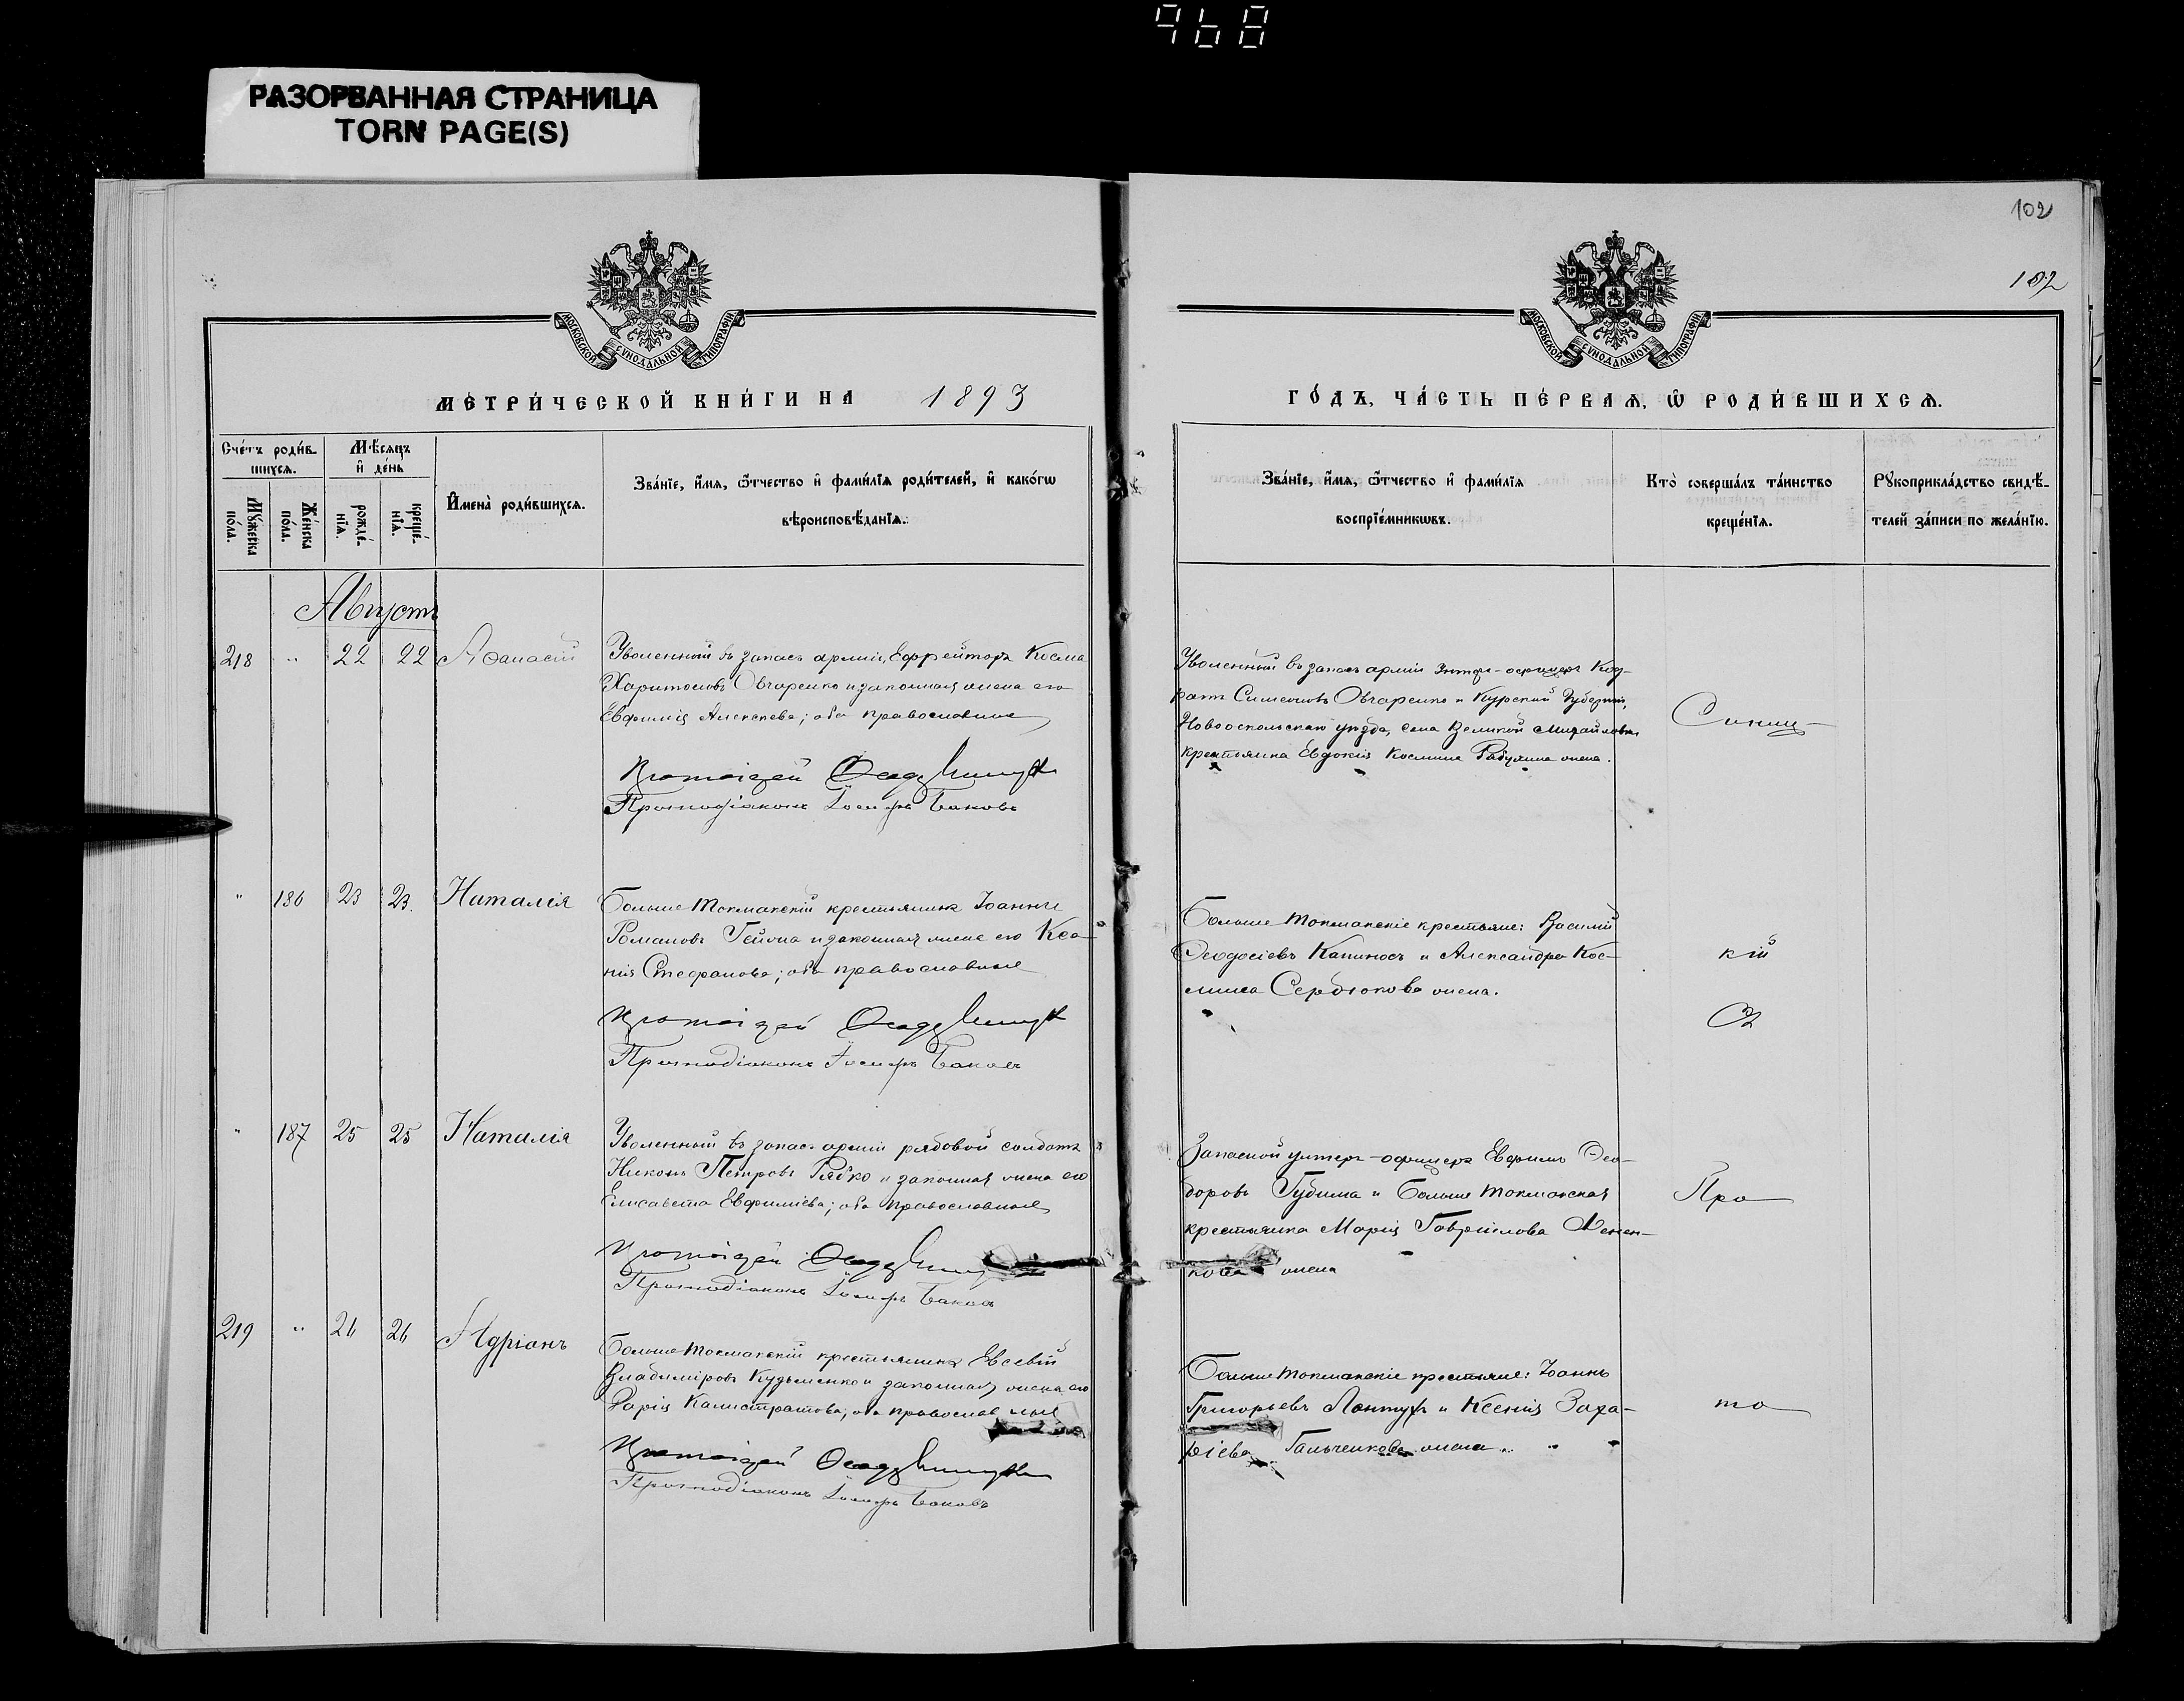 968
РАЗОРВАННАЯ СТРАНИЦА
TORN PAGE(S)
102
102
МОСКОВСКОЙ СУНОДАЛЬНОЙ ТИПОГРАФІИ
МОСКОВСКОЙ СУНОДАЛЬНОЙ ТИПОГРАФІИ
МЕТРИ́ЧЕСКОЙ КНИ́ГИ НА 1893
ГО́ДЪ, ЧА́СТЬ ПЕ́РВАѦ, Ѡ РОДИ́ВШИХСѦ.
Сче́тъ роди́в-
шихсѧ.
Мꙋ́жеска
по́ла.
Же́нска
по́ла.
Мѣ́сяцъ
и҆ де́нь
рожде́-
нїѧ.
креще́-
нїѧ.
И҆мена̀ роди́вшихсѧ.
Зва́нїе, и҆́мѧ, ѻ҆́тчество и҆ фами́лїѧ роди́телей, и҆ како́гѡ
вѣроисповѣ́данїѧ.
Зва́нїе, и҆́мѧ, ѻ҆́тчество и҆ фами́лїѧ
воспрїе́мникѡвъ.
Кто̀ соверша́лъ та́инство
креще́нїѧ.
Рꙋкоприкла́дство свидѣ́-
телей за́писи по жела́нїю.
Августъ
218 " 22 22 Аѳанасій
Уволенный въ запасъ арміи, Ефрейторъ Косма
Харитоновъ Овчаренко и законная жена его
Евфимія Алексѣева; оба православные
Протоіерей
Протодіаконъ Іосифъ Баковъ
Уволенный въ запасъ арміи Унтеръ-офицеръ Код-
ратъ Симеоновъ Овчаренко и Курской Губерніи,
Новооскольскаго уѣзда, села Великой Михайловки
крестьянка Евдокія Космина жена.
Синиц-
" 186 23 23. Наталія
Больше Токмакскій крестьянинъ Іоаннъ
Романовъ и законная жена его Ксе-
нія Стефанова; оба православные
Протоіерей
Протодіаконъ Іосифъ Баковъ
Больше Токмакскіе крестьяне: Василій
Ѳеодосіевъ Капиносъ и Александра Кос-
мина Сердюкова жена.
кій
" 187 25 25 Наталія
Уволенный въ запасъ арміи рядовой солдатъ
Никонъ Петровъ Рябко и законная жена его
Елисавета Евфиміева; оба православные
Протоіерей
Протодіаконъ Іосифъ Баковъ
Запасной унтеръ-офицеръ Евфимъ Ѳео-
доровъ Губима и Больше Токмакская
крестьянка Марія Гавріилова
кова жена
Про
219 " 26 26 Адріанъ
Больше Токмакскій крестьянинъ Евсевій
Владиміровъ Кузьменко и законная жена его
Дарія Калистратова; оба православные
Протоіерей
Протодіаконъ Іосифъ Баковъ
Больше Токмакскіе крестьяне: Іоаннъ
Григорьевъ и Ксенія Заха-
ріева Гальченкова жена
то